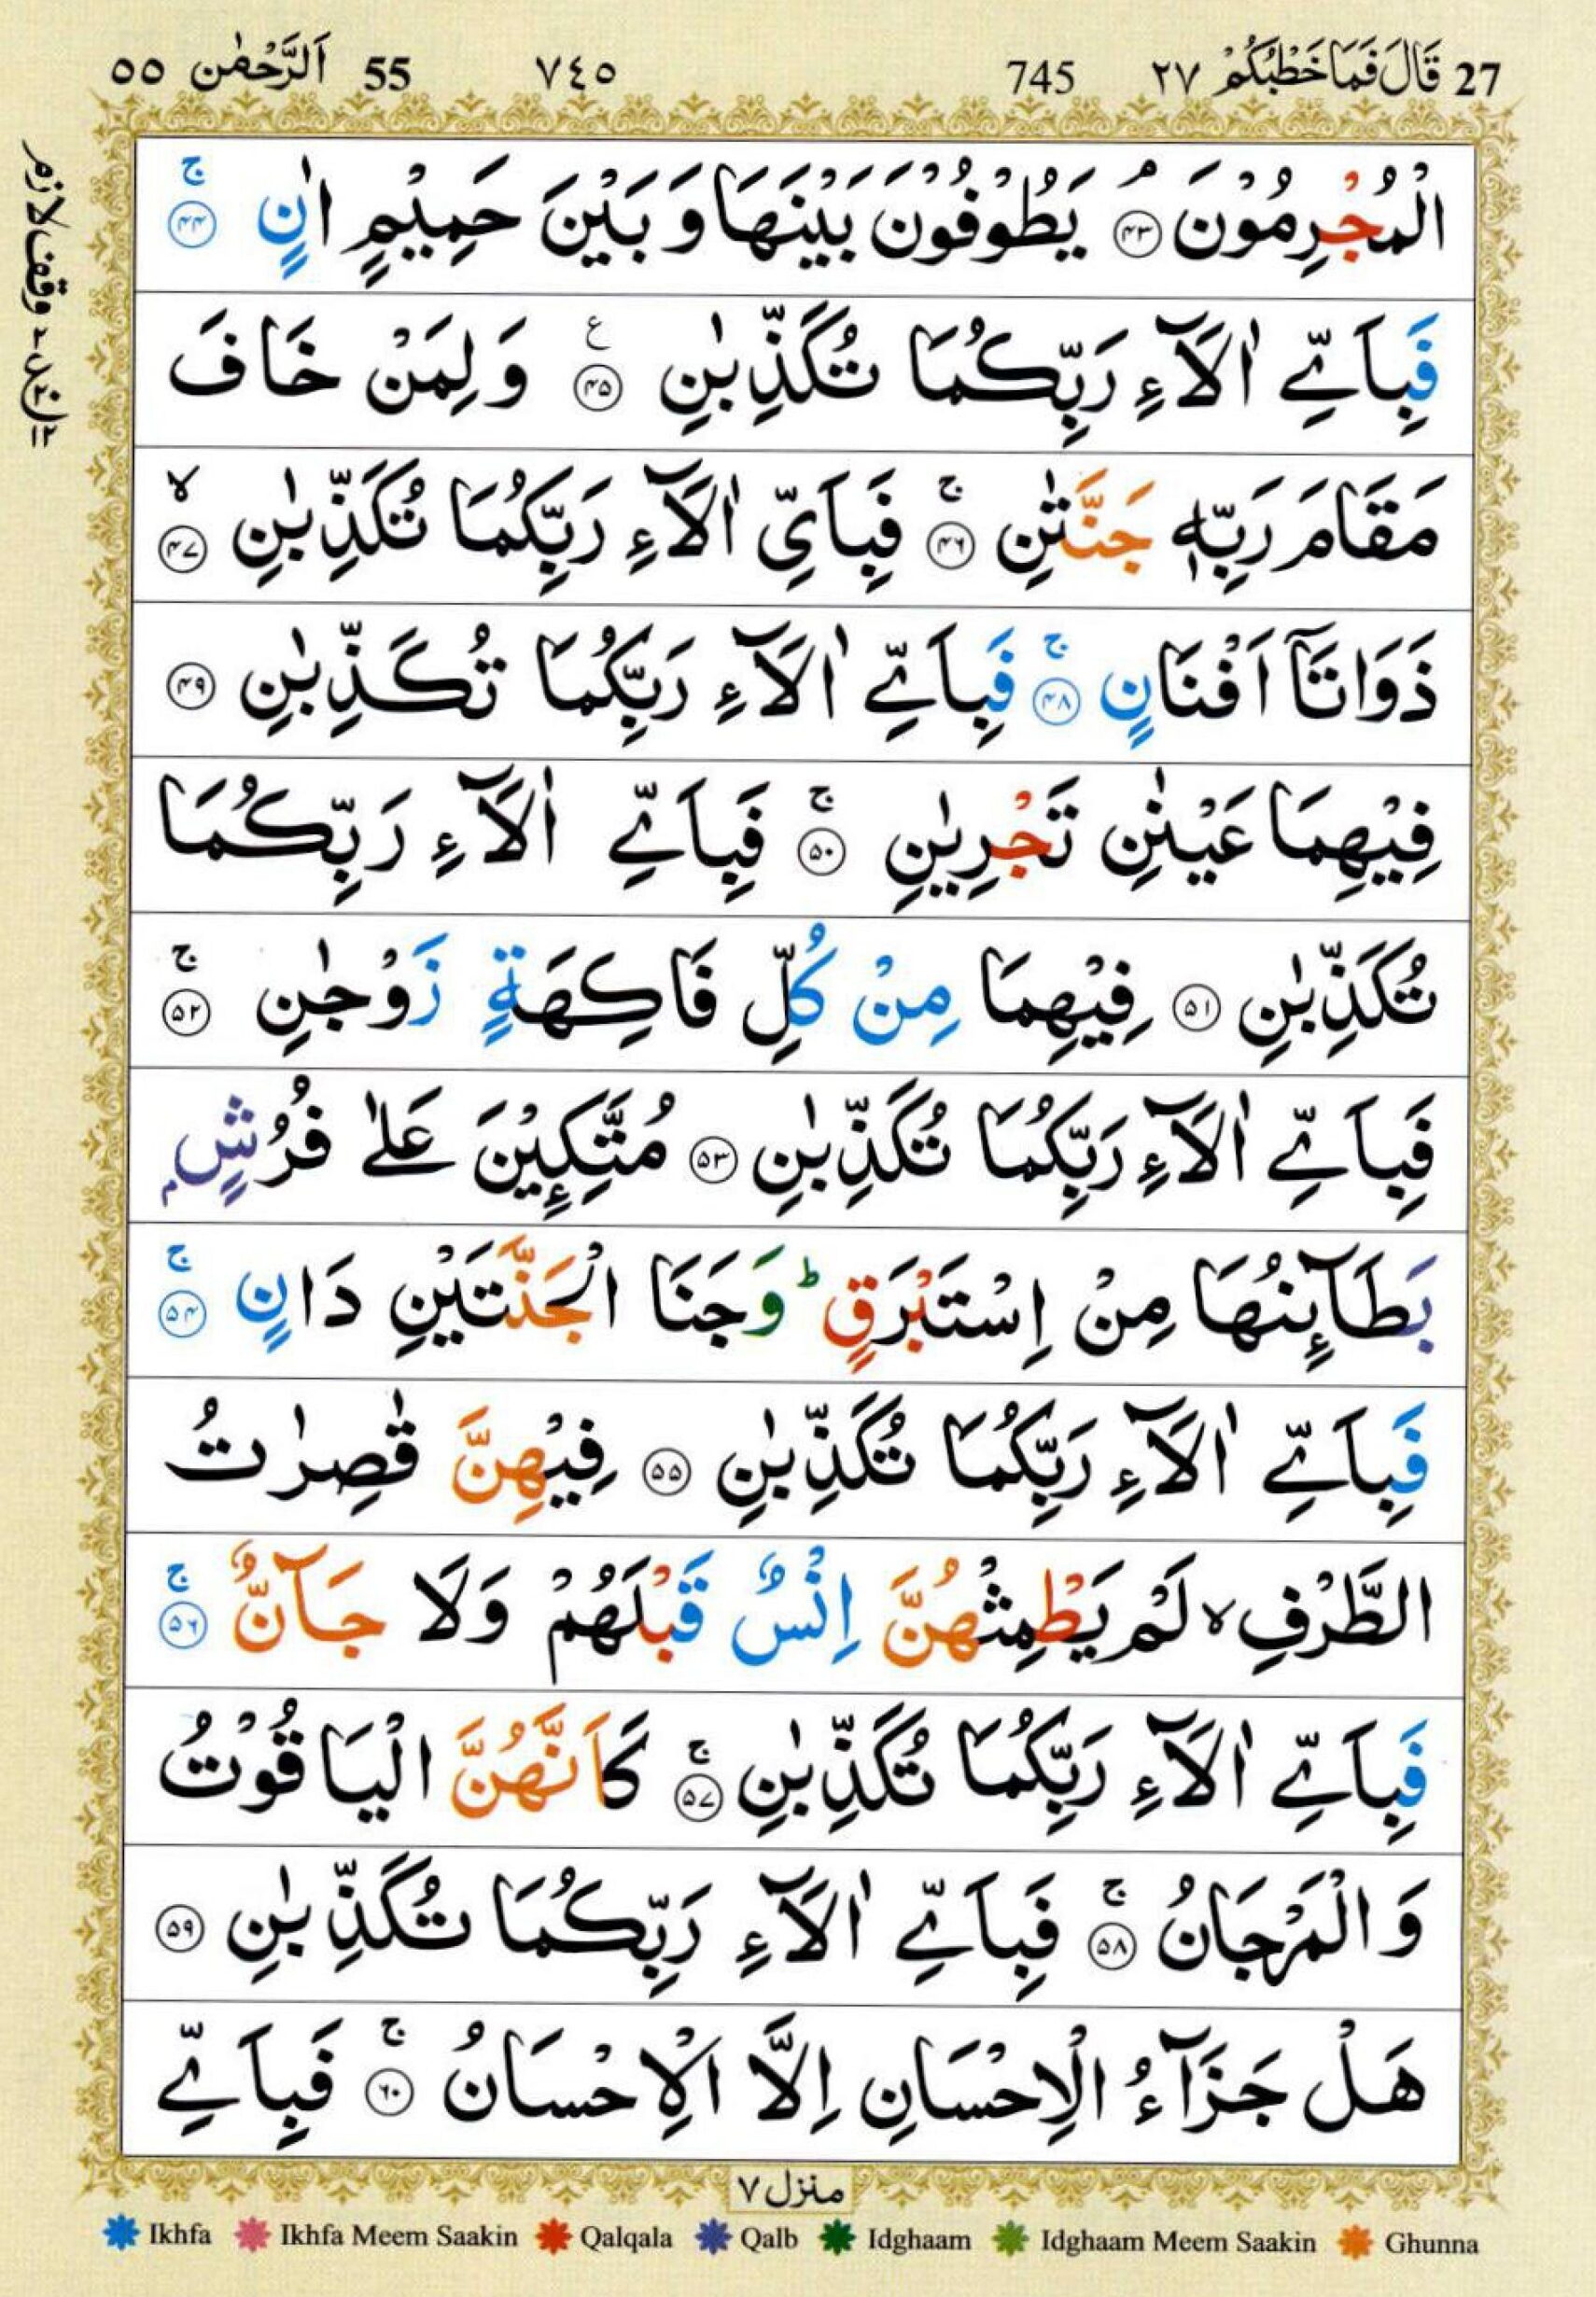 27 قَالَ فَمَا خَطْبُكُمْ ٢٧ 745 ٧٤٥ 55 اَلرَّحْمٰن ٥٥
الْمُجْرِمُوْنَ ۘ ﴿۴۳﴾ يَطُوْفُوْنَ بَيْنَهَا وَ بَيْنَ حَمِيْمٍ اٰنٍ ۚ ﴿۴۴﴾
فَبِاَيِّ اٰلَآءِ رَبِّكُمَا تُكَذِّبٰنِ ﴿۴۵﴾ ع وَ لِمَنْ خَافَ
مَقَامَ رَبِّهٖ جَنَّتٰنِ ۚ ﴿۴۶﴾ فَبِاَيِّ اٰلَآءِ رَبِّكُمَا تُكَذِّبٰنِ ۙ ﴿۴۷﴾
ذَوَاتَاۤ اَفْنَانٍ ۚ ﴿۴۸﴾ فَبِاَيِّ اٰلَآءِ رَبِّكُمَا تُكَذِّبٰنِ ﴿۴۹﴾
فِيْهِمَا عَيْنٰنِ تَجْرِيٰنِ ۚ ﴿۵۰﴾ فَبِاَيِّ اٰلَآءِ رَبِّكُمَا
تُكَذِّبٰنِ ﴿۵۱﴾ فِيْهِمَا مِنْ كُلِّ فَاكِهَةٍ زَوْجٰنِ ۚ ﴿۵۲﴾
فَبِاَيِّ اٰلَآءِ رَبِّكُمَا تُكَذِّبٰنِ ﴿۵۳﴾ مُتَّكِـِٕيْنَ عَلٰى فُرُشٍۭ
بَطَآئِنُهَا مِنْ اِسْتَبْرَقٍ ؕ وَ جَنَا الْجَنَّتَيْنِ دَانٍ ۚ ﴿۵۴﴾
فَبِاَيِّ اٰلَآءِ رَبِّكُمَا تُكَذِّبٰنِ ﴿۵۵﴾ فِيْهِنَّ قٰصِرٰتُ
الطَّرْفِ ۙ لَمْ يَطْمِثْهُنَّ اِنْسٌ قَبْلَهُمْ وَلَا جَآنٌّ ۚ ﴿۵۶﴾
فَبِاَيِّ اٰلَآءِ رَبِّكُمَا تُكَذِّبٰنِ ۚ ﴿۵۷﴾ كَاَنَّهُنَّ الْيَاقُوْتُ
وَ الْمَرْجَانُ ۚ ﴿۵۸﴾ فَبِاَيِّ اٰلَآءِ رَبِّكُمَا تُكَذِّبٰنِ ﴿۵۹﴾
هَلْ جَزَآءُ الْاِحْسَانِ اِلَّا الْاِحْسَانُ ۚ ﴿۶۰﴾ فَبِاَيِّ
منزل ٧
Ikhfa Ikhfa Meem Saakin Qalqala Qalb Idghaam Idghaam Meem Saakin Ghunna